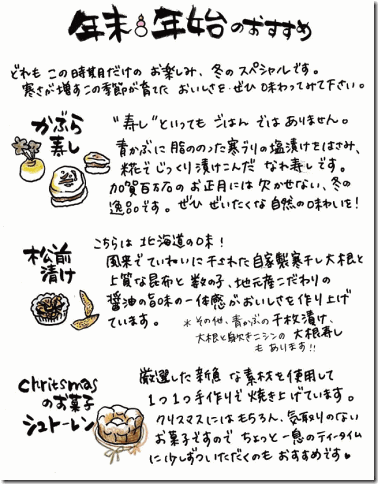 年末年始のおすすめ
どれも この時期だけの お楽しみ、冬のスペシャルです。
寒さが増すこの季節が育てた おいしさを ぜひ 味わってみて下さい。
かぶら
寿し
"寿し"といっても ごはん では ありません。
青かぶに 脂ののった寒ブリの塩漬けをはさみ、
糀でじっくり漬けこんだ なれ寿しです。
加賀百万石の お正月には 欠かせない、冬の
逸品です。ぜひ ぜいたくな自然の味わいを!
松前
漬け
こちらは 北海道の味!
風来で ていねいに 干された 自家製寒干し大根と
上質な昆布と 数の子、地元産こだわりの
醤油の旨味の一体感がおいしさを作り上げ
ています。
*その他、青かぶの千枚漬け、
大根と身欠きニシンの 大根寿し
も あります!!
Chritsmas
のお菓子
シュトーレン
厳選した新魚 な素材を使用して
1つ1つ手作りで 焼き上げています。
クリスマスにはもちろん、気取りのない
お菓子ですので ちょっと一息のティータイム
に少しずついただくのも おすすめです♥